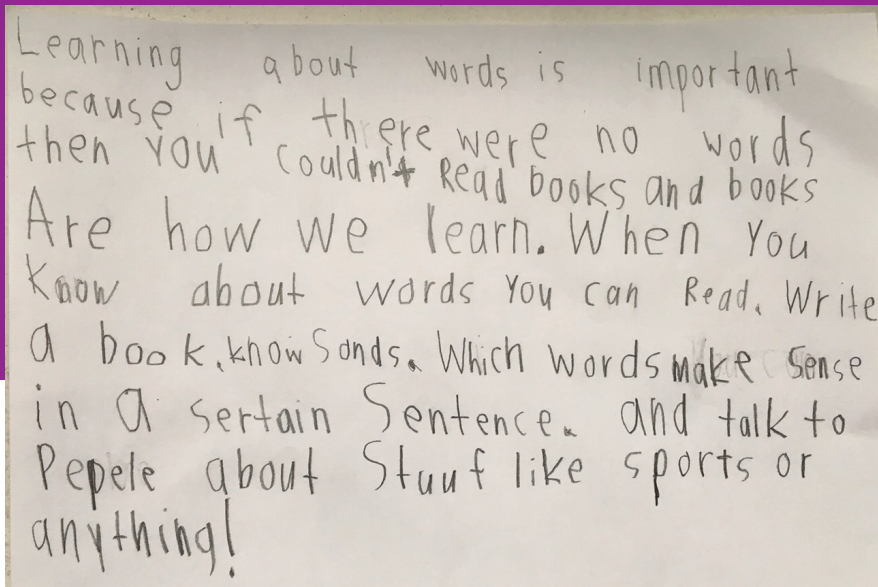 Learning about words is important
because if there were no words
then you couldn't Read books and books
Are how we learn. When you
know about words you can Read. Write
a book. know Sonds. Which words make Sense
in a sertain Sentence. and talk to
Pepele about Stuuf like sports or
anything!